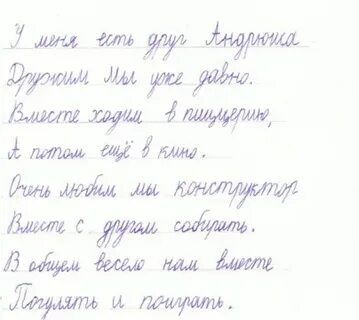 У меня есть друг Андрюша
Дружим мы уже давно.
Вместе ходим в пиццерию,
А потом ещё в кино.
Очень любим мы конструктор
Вместе с другом собирать.
В общем весело нам вместе
Погулять и поиграть.